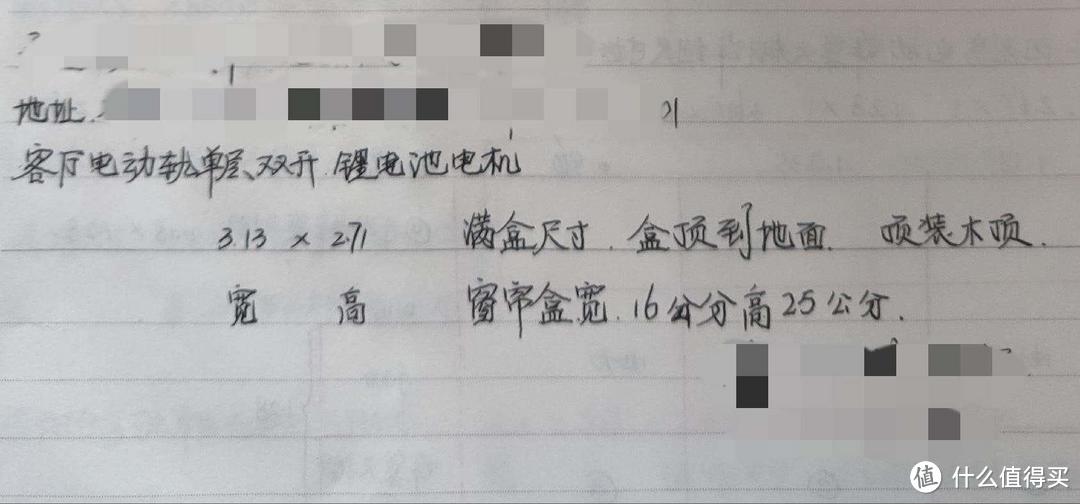 地址
客厅电动轨单层、双开 锂电池电机
3.13 × 2.71 满盒尺寸. 盒顶到地面. 顶装木顶.
宽 高 窗帘盒宽.16公分高25公分.
值 什么值得买